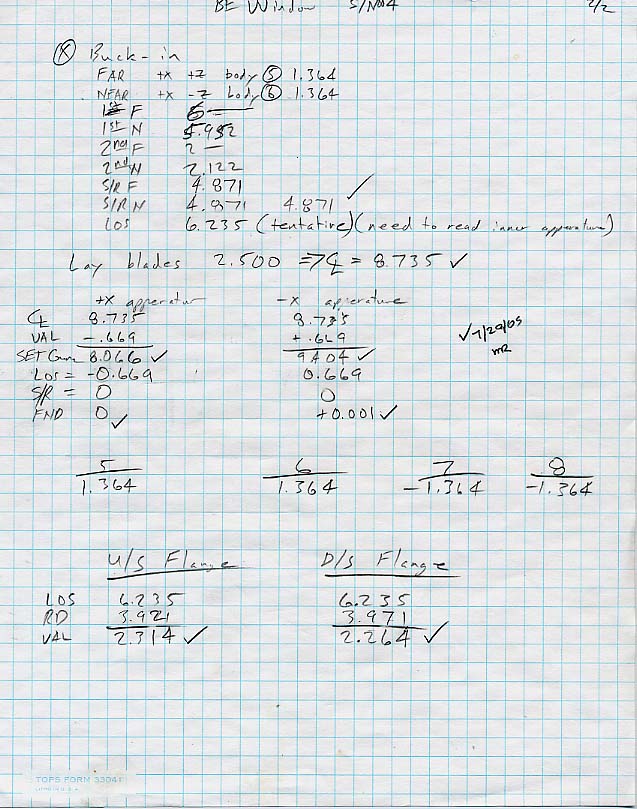 BE Window S/N004 2/2
Ⓧ Buck-in
FAR +x +z body ⑤ 1.364
NEAR +x -z body ⑥ 1.364
1st F 6 —
1st N 5.952
2nd F 2 —
2nd N 2.122
S/R F 4.871
S/R N 4.871 4.871 ✓
LOS 6.235 (tentative)(need to read inner apperature)
Lay blades 2.500 ⇒ ℄ = 8.735 ✓
+X apperatur -X apperature
℄ 8.735 8.735
VAL -.669 +.669
SET Gun 8.066 ✓ 9.404 ✓
LOS = -0.669 0.669
S/R = 0 0
FND 0 ✓ +0.001 ✓
✓ 7/29/05
MR
5 6 7 8
1.364 1.364 -1.364 -1.364
U/S Flange D/S Flange
LOS 6.235 6.235
RD 3.921 3.971
VAL 2.314 ✓ 2.264 ✓
TOPS FORM 33041